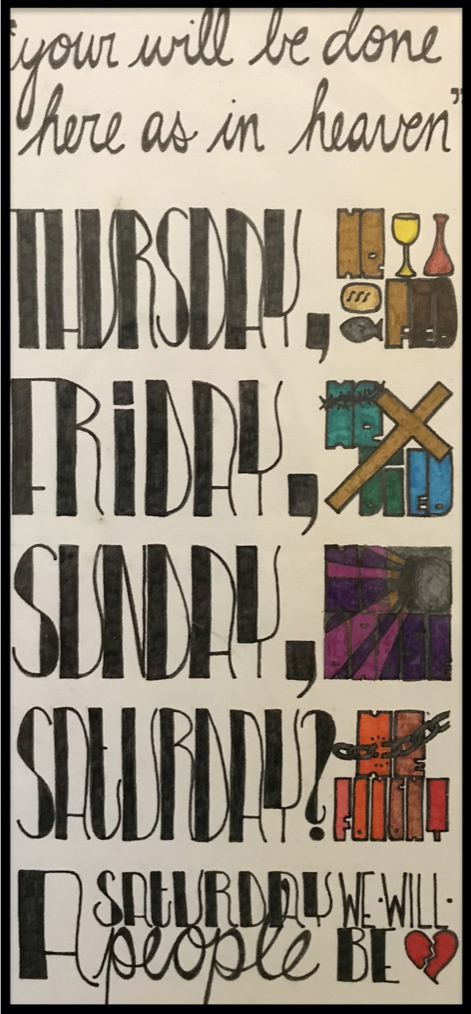 "your will be done
here as in heaven"
THURSDAY, HE FED
FRiDAY, HE DiED
SUNDAY,
SATURDAY? HE FOUGHT
A SATURDAY people WE·WILL· BE